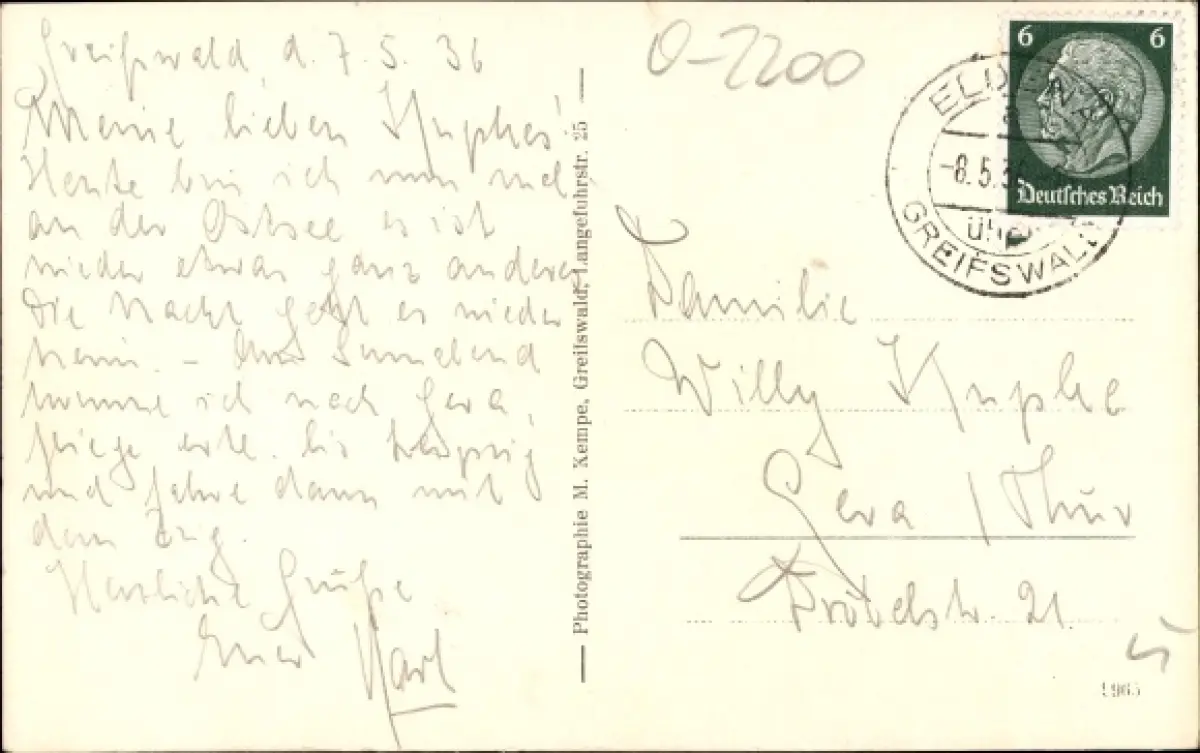 Greifswald, d. 7.5.36
Meine lieben Kuphes!
Heute bin ich nun mal
an der Ostsee es ist
wieder etwas ganz anderes
Die Nacht geht es wieder
heim. - Am Sonnabend
komme ich nach Gera,
fliege evtl. bis Leipzig
und fahre dann mit
dem Zug.
Herzliche Grüße
Euer Karl
Photographie M. Kempe, Greifswald, Langefuhrstr. 25
0-2200
6 6
Deutsches Reich
ELDENA
-8.5.36
über
GREIFSWALD
Familie
Willy Kuphe
Gera / Thür
21